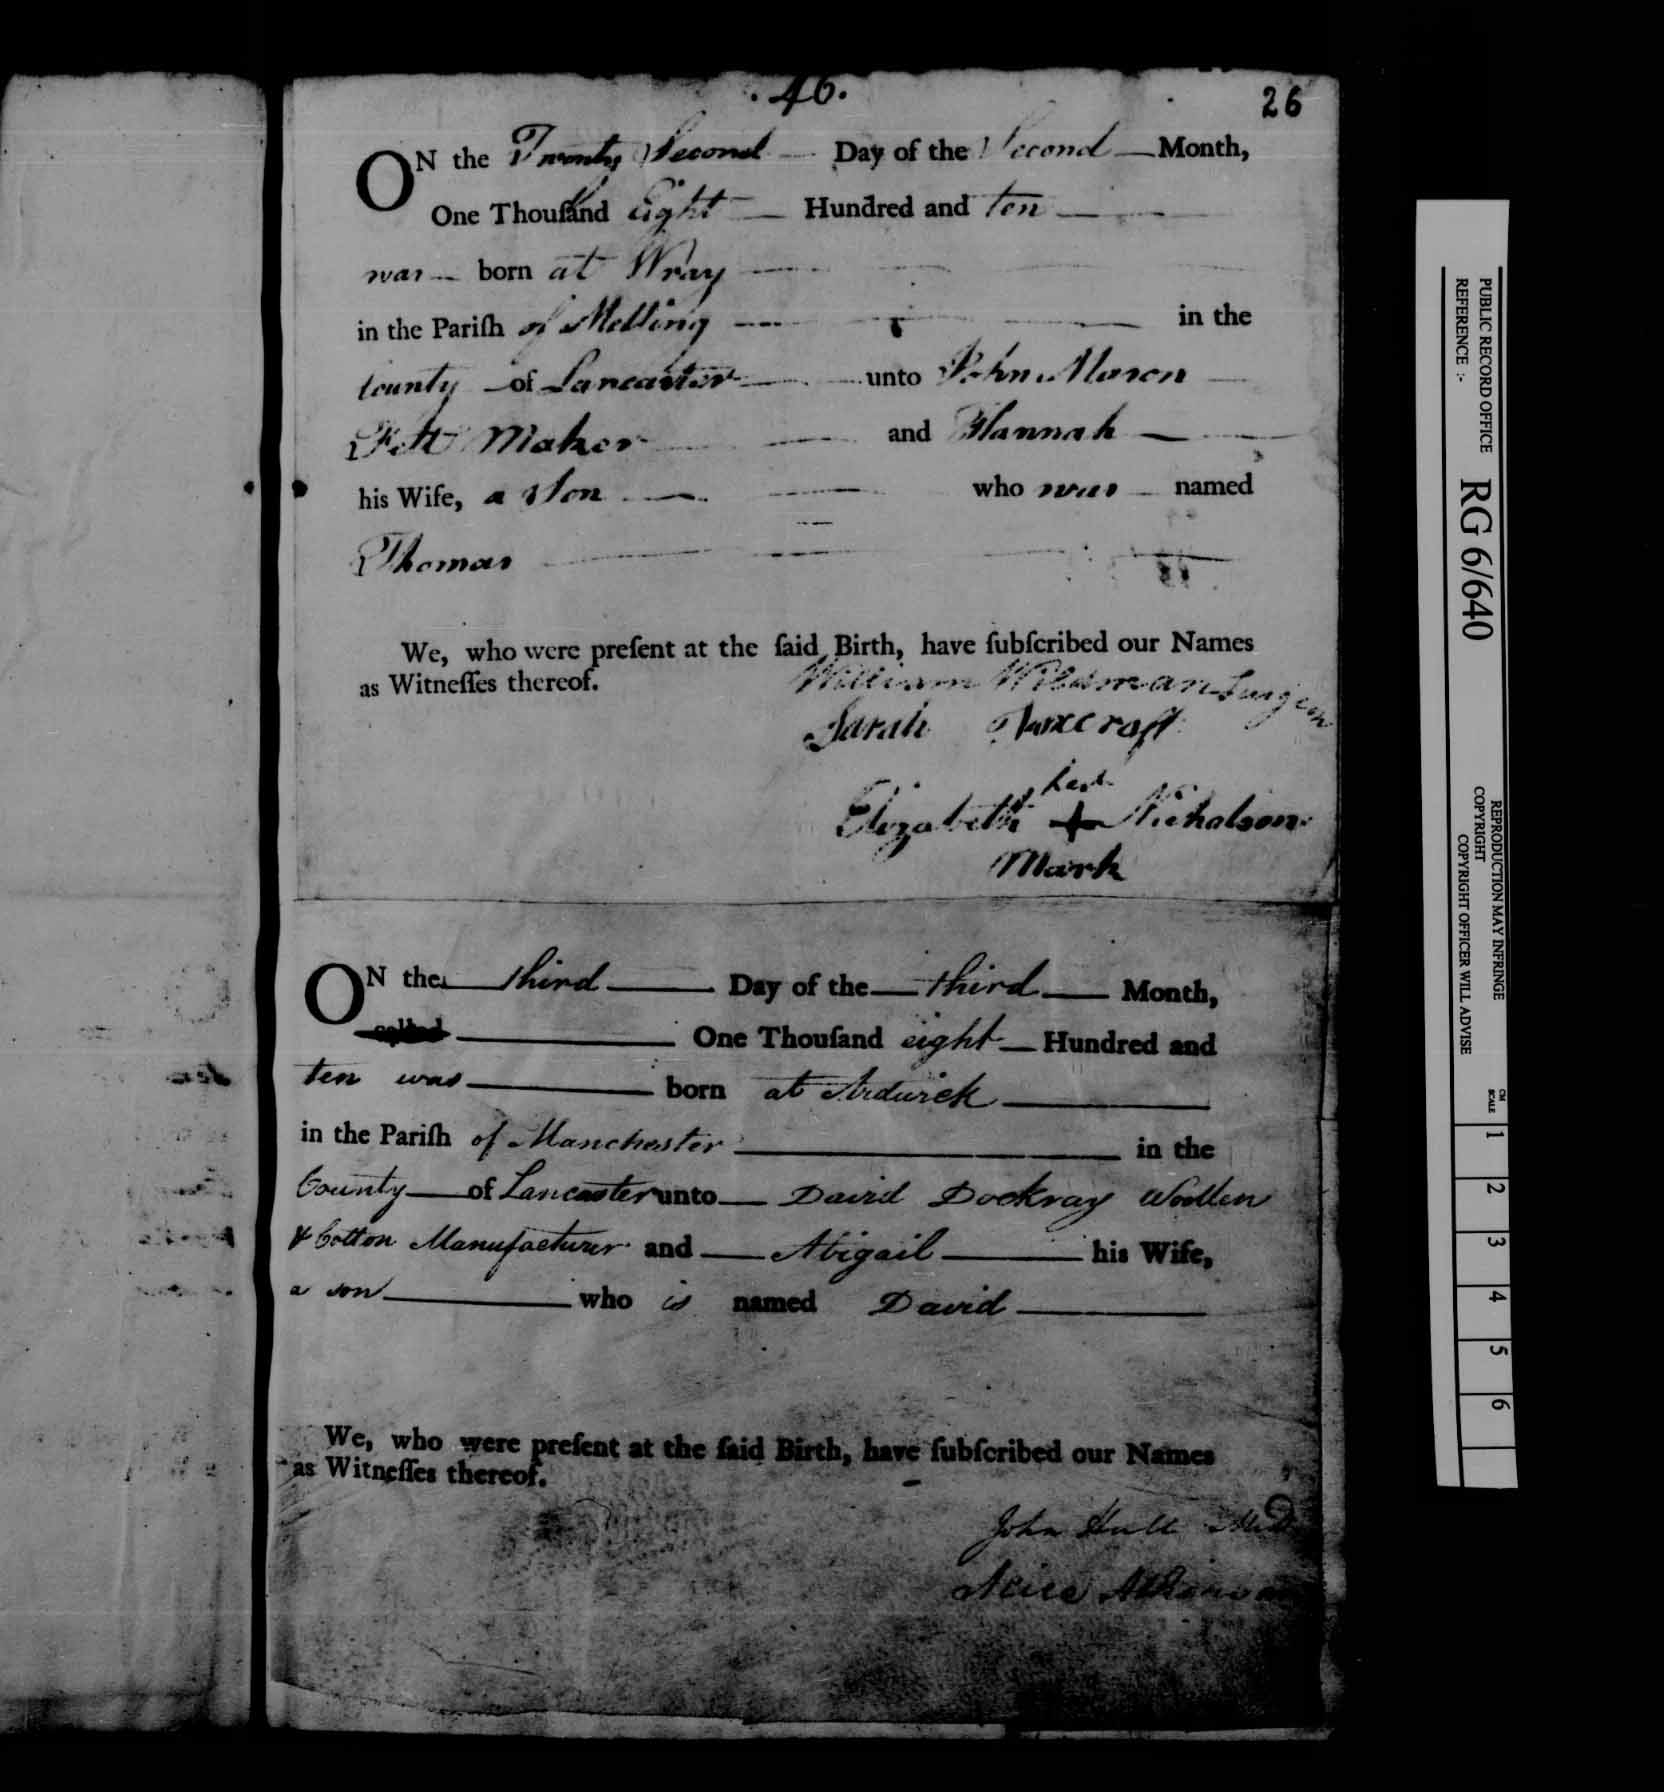 . 46 .
26
ON the Twenty Second Day of the Second Month,
One Thouſand Eight Hundred and ten
was born at Wray
in the Pariſh of Melling in the
County of Lancaster unto John Mason
Felt Maker and Hannah
his Wife, a Son who was named
Thomas
We, who were preſent at the ſaid Birth, have ſubſcribed our Names
as Witneſſes thereof.
William Wildman Surgeon
Sarah
her
Elizabeth + Nicholson
Mark
ON the third Day of the third Month,
called One Thouſand eight Hundred and
ten was born at Ardwick
in the Pariſh of Manchester in the
County of Lancaster unto David Dockray Woollen
& Cotton Manufacturer and Abigail his Wife,
a son who is named David
We, who were preſent at the ſaid Birth, have ſubſcribed our Names
as Witneſſes thereof.
John Hull MD
Alice
PUBLIC RECORD OFFICE
REFERENCE :-
RG 6/640
REPRODUCTION MAY INFRINGE
COPYRIGHT
COPYRIGHT OFFICER WILL ADVISE
CM
SCALE
1
2
3
4
5
6